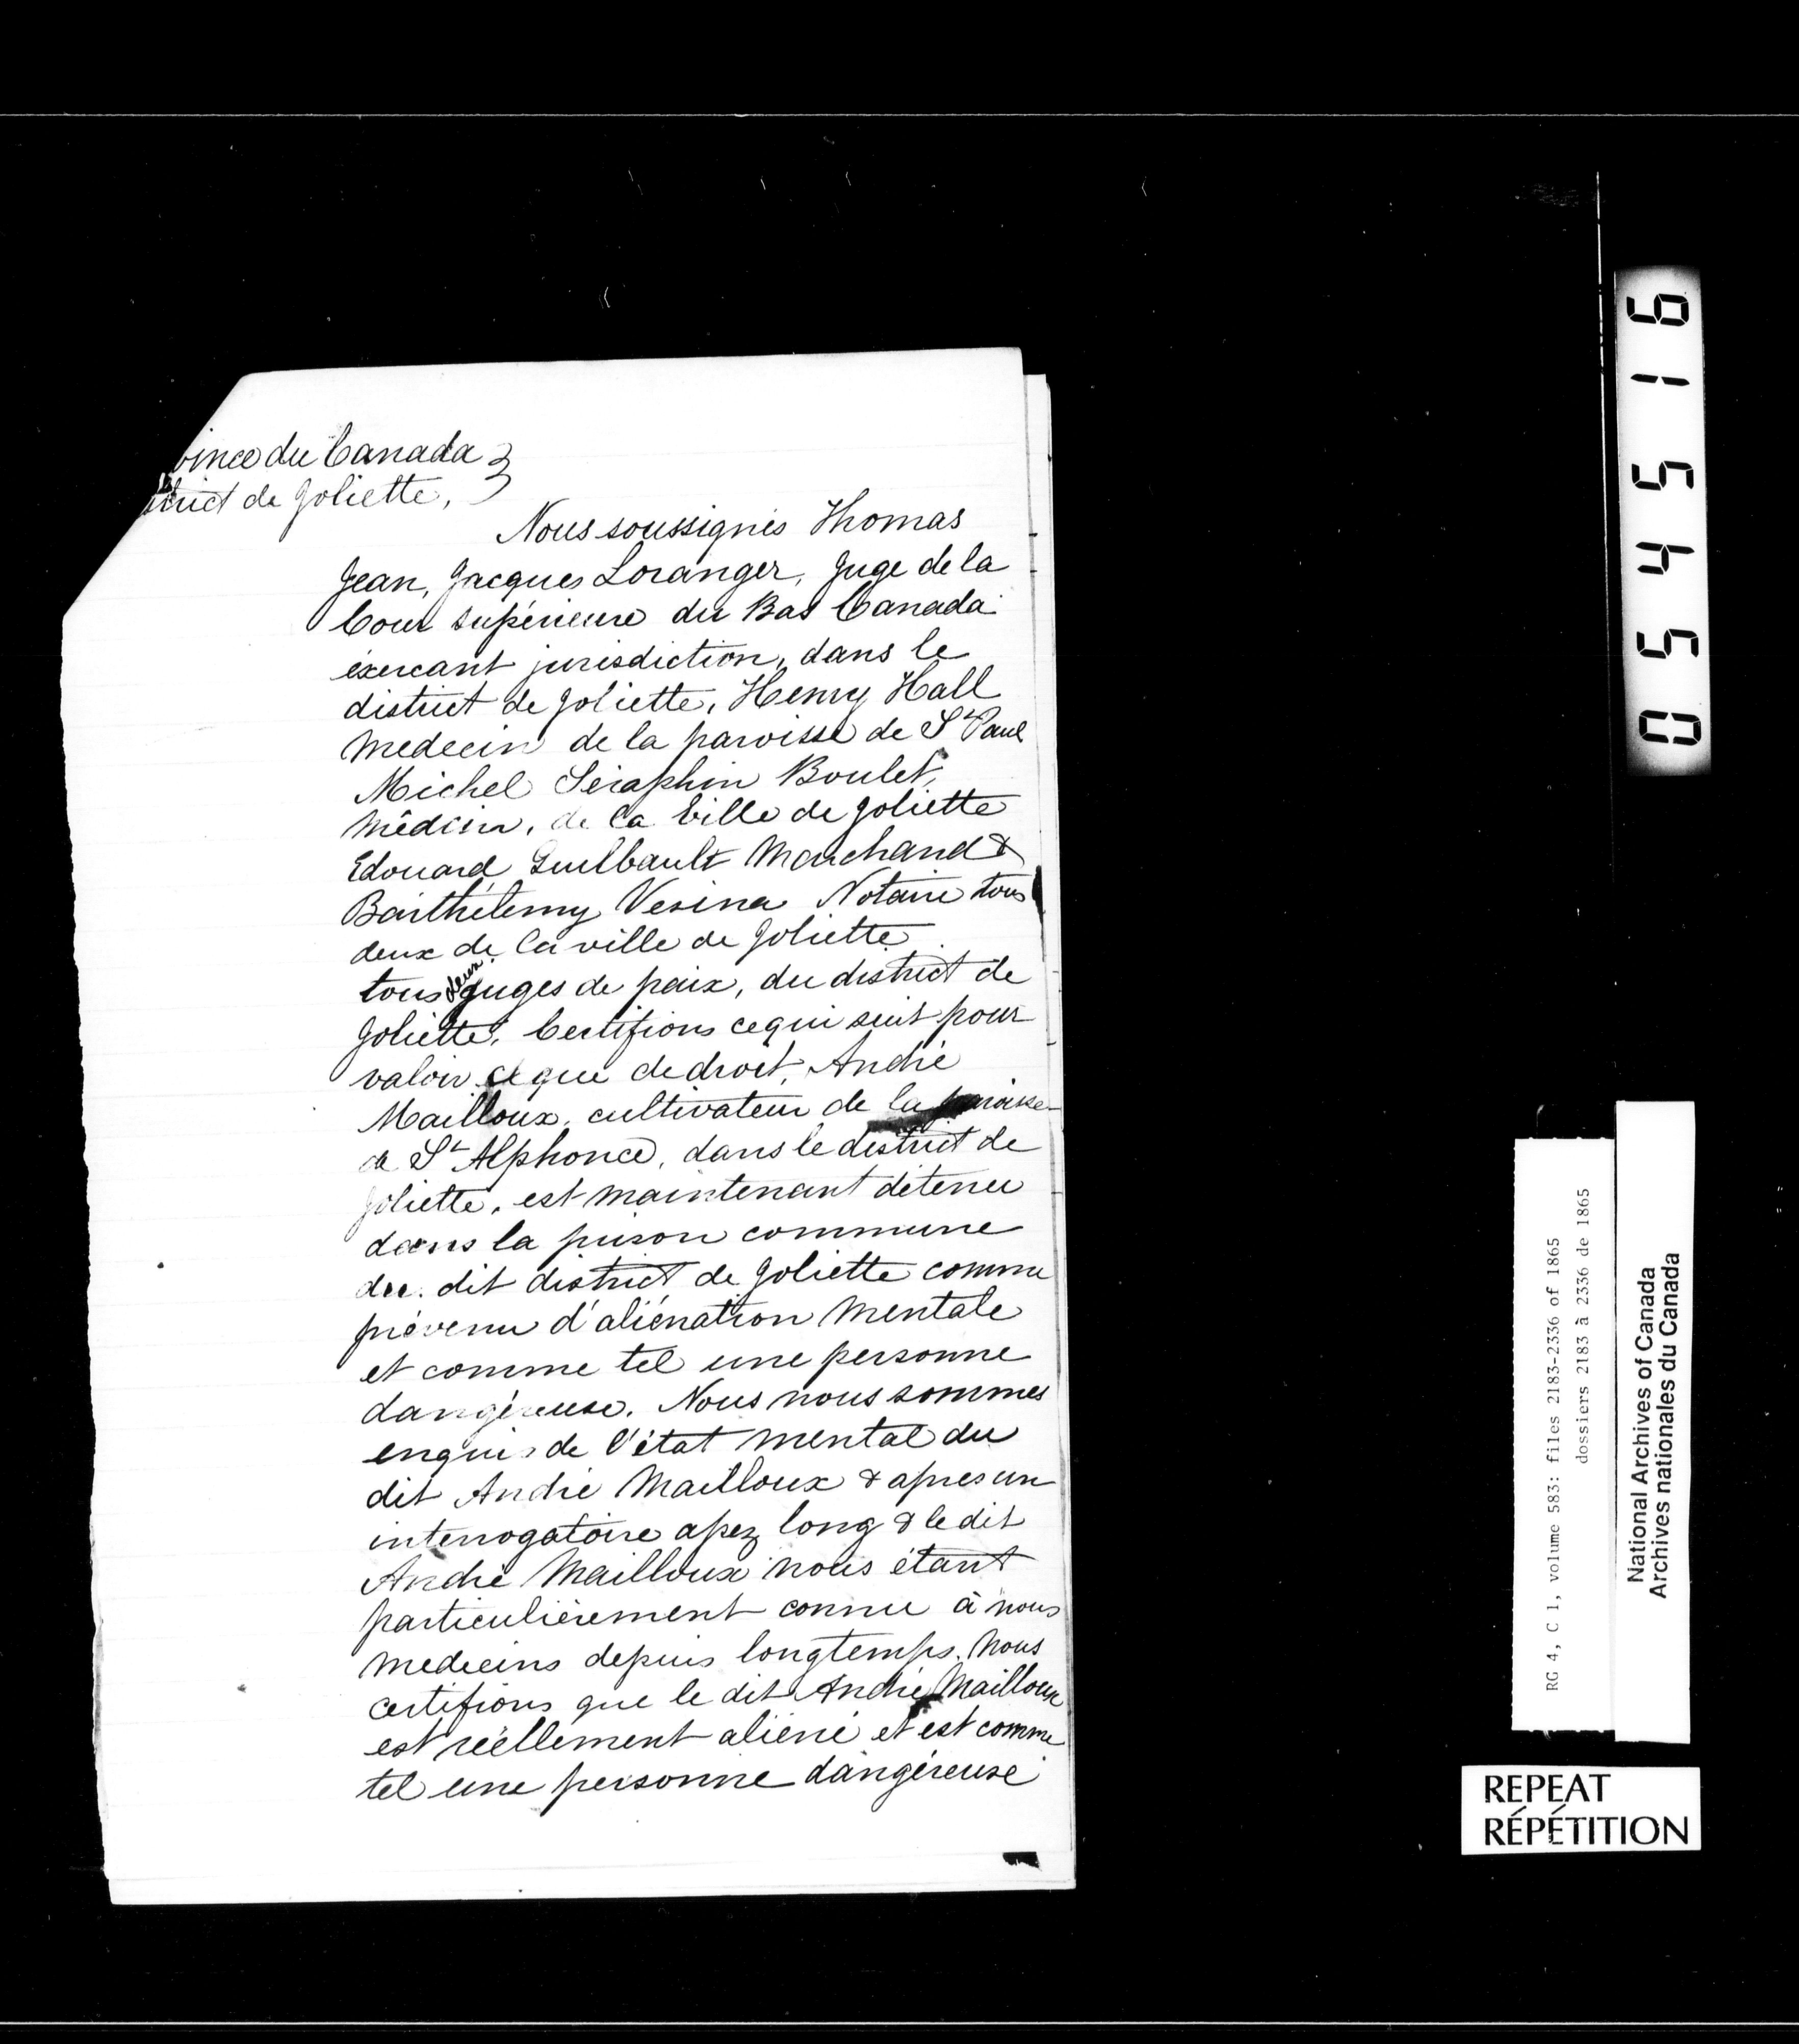 vince du Canada }
strict de Joliette, }
Nous soussignés Thomas
Jean, Jacques Loranger, Juge de la
Cour supérieure du Bas Canada
éxercant jurisdiction, dans le
district de Joliette, Henry Hall
Medecin de la paroisse de St Paul
Michel Séraphin Boulet,
Médcin, de la Ville de Joliette
Edouard Guilbault Marchand &
Barthélemy Vesina Notaire tous
deux de la ville de Joliette
tous deux Juges de paix, du district de
Joliette, Certifions ce qui suit pour
valoir ce que de droit, André
Mailloux, cultivateur de la paroisse
de St Alphonce, dans le district de
Joliette, est maintenant détenu
dans la prison commune
du dit district de Joliette comme
prévenu d'aliénation Mentale
et comme tel une personne
dangéreuse. Nous nous sommes
enquis de l'état mental du
dit André Mailloux & apres un
interrogatoire assez long & le dit
André Mailloux nous étant
particulièrement connu à nous
medecins depuis longtemps, Nous
certifions que le dit André Mailloux
est réellement aliéné et est comme
tel une personne dangéreuse
054516
RG 4, C 1, volume 583: files 2183-2336 of 1865
dossiers 2183 à 2336 de 1865
National Archives of Canada
Archives nationales du Canada
REPEAT
RÉPÉTITION